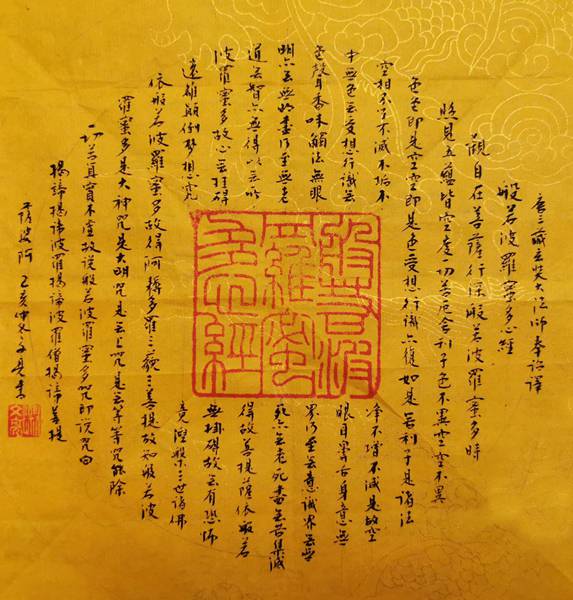 唐三藏玄奘大法师奉詔譯
般若波羅蜜多心經
觀自在菩薩行深般若波羅蜜多時
照見五蘊皆空度一切苦厄舍利子色不異空空不異
色色即是空空即是色受想行識亦復如是舍利子是諸法
空相不生不滅不垢不
淨不增不減是故空
中無色无受想行識无
眼耳鼻舌身意无
色聲香味觸法無眼
界乃至无意識界无無
明亦无無明盡乃至無老
死亦无老死盡无苦集滅
道无智亦無得以无所
得故菩提薩依般若
波羅蜜多故心无挂碍
無掛碍故无有恐怖
遠離顛倒夢想究
竟涅槃三世諸佛
依般若波羅蜜多故得阿耨多羅三藐三菩提故知般若波
羅蜜多是大神咒是大明咒是无上咒是无等等咒能除
一切苦真實不虛故說般若波羅蜜多咒即說咒曰
揭諦揭諦波羅揭諦波羅僧揭諦菩提
薩婆訶 己亥
般若波
羅蜜
多心經